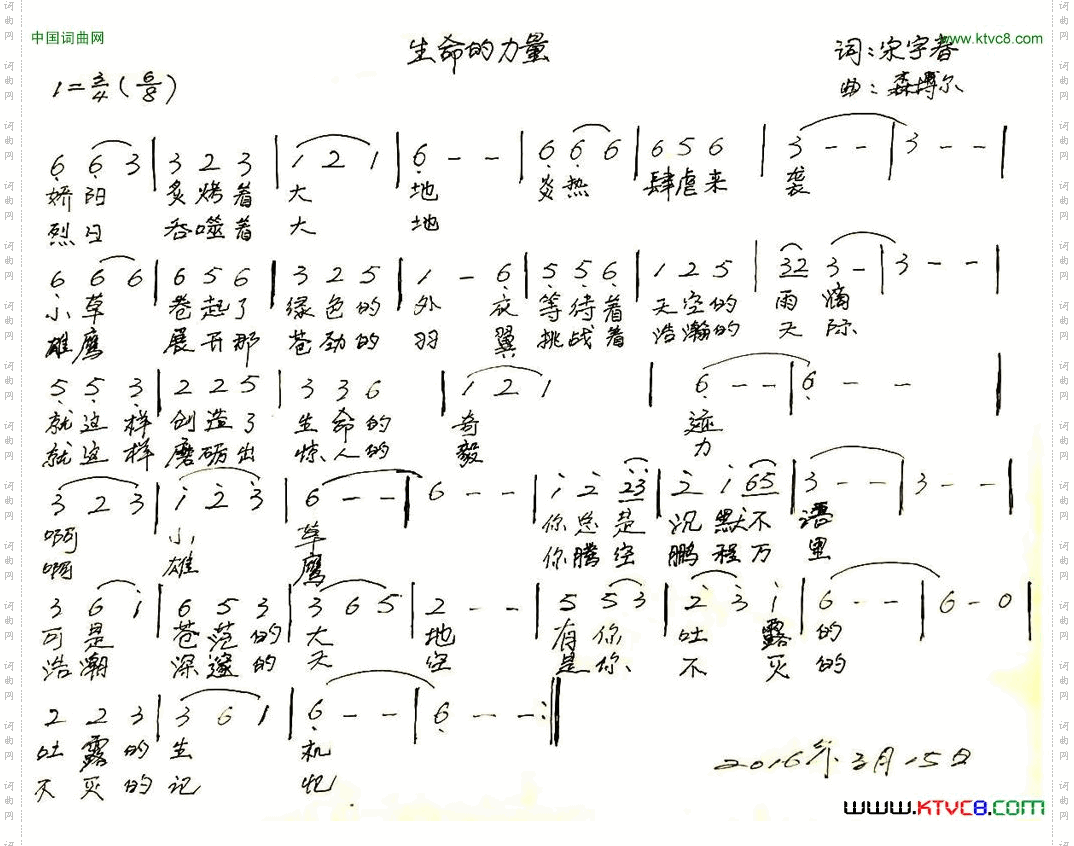 中国词曲网
www.ktvc8.com
生命的力量
词:宋宇春
曲:森博尔
1=3/4(6/8)
6 6 3 | 3 2 3 | 1 2 1 | 6 - - | 6 6 6 | 6 5 6 | 3 - - | 3 - - |
娇阳 炙烤着 大 地 炎热 肆虐来 袭
烈日 吞噬着 大 地
6 6 6 | 6 5 6 | 3 2 5 | 1 - 6 | 5 5 6 | 1 2 5 | 32 3 - | 3 - - |
小草 卷起了 绿色的 外 衣 等待着 天空的 雨 滴
雄鹰 展开那 苍劲的 羽 翼 挑战着 浩瀚的 天 际
5 5 3 | 2 2 5 | 3 3 6 | 1 2 1 | 6 - - | 6 - - |
就这样 创造了 生命的 奇 迹
就这样 磨砺出 惊人的 毅 力
3 2 3 | 1 2 3 | 6 - - | 6 - - | 1 2 23 | 2 1 65 | 3 - - | 3 - - |
啊 小 草 你总是 沉默不 语
啊 雄 鹰 你腾空 鹏程万 里
3 6 1 | 6 5 3 | 3 6 5 | 2 - - | 5 5 3 | 2 3 1 | 6 - - | 6 - 0 |
可是 苍茫的 大 地 有你 吐 露 的
浩瀚 深邃的 天 空 是你 不 灭 的
2 2 3 | 3 6 1 | 6 - - | 6 - - :||
吐露的 生 机
不灭的 记 忆
2016年3月15日
www.KTVC8.com